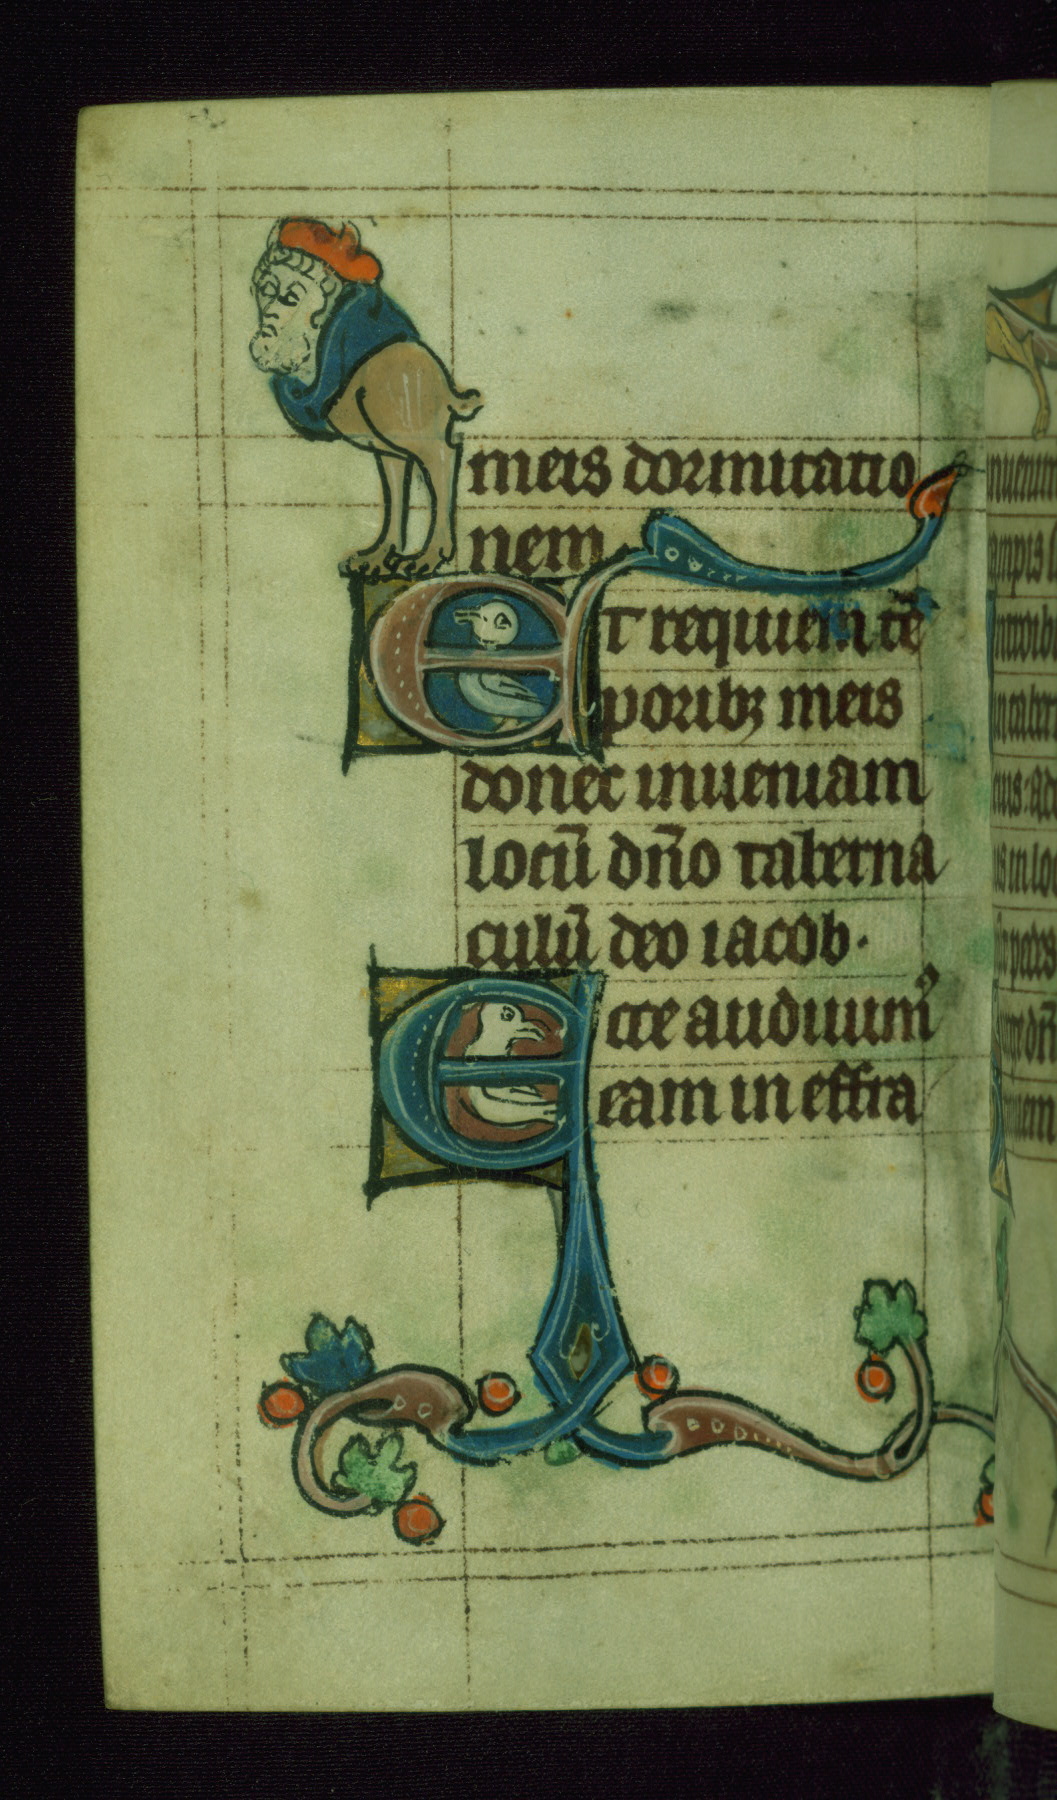 meis dormitatio
nem
Et requiem tē
poribꝫ meis
donec inueniam
locū dn̄o taberna
culū deo iacob·
Ecce audiuimꝰ
eam in effra